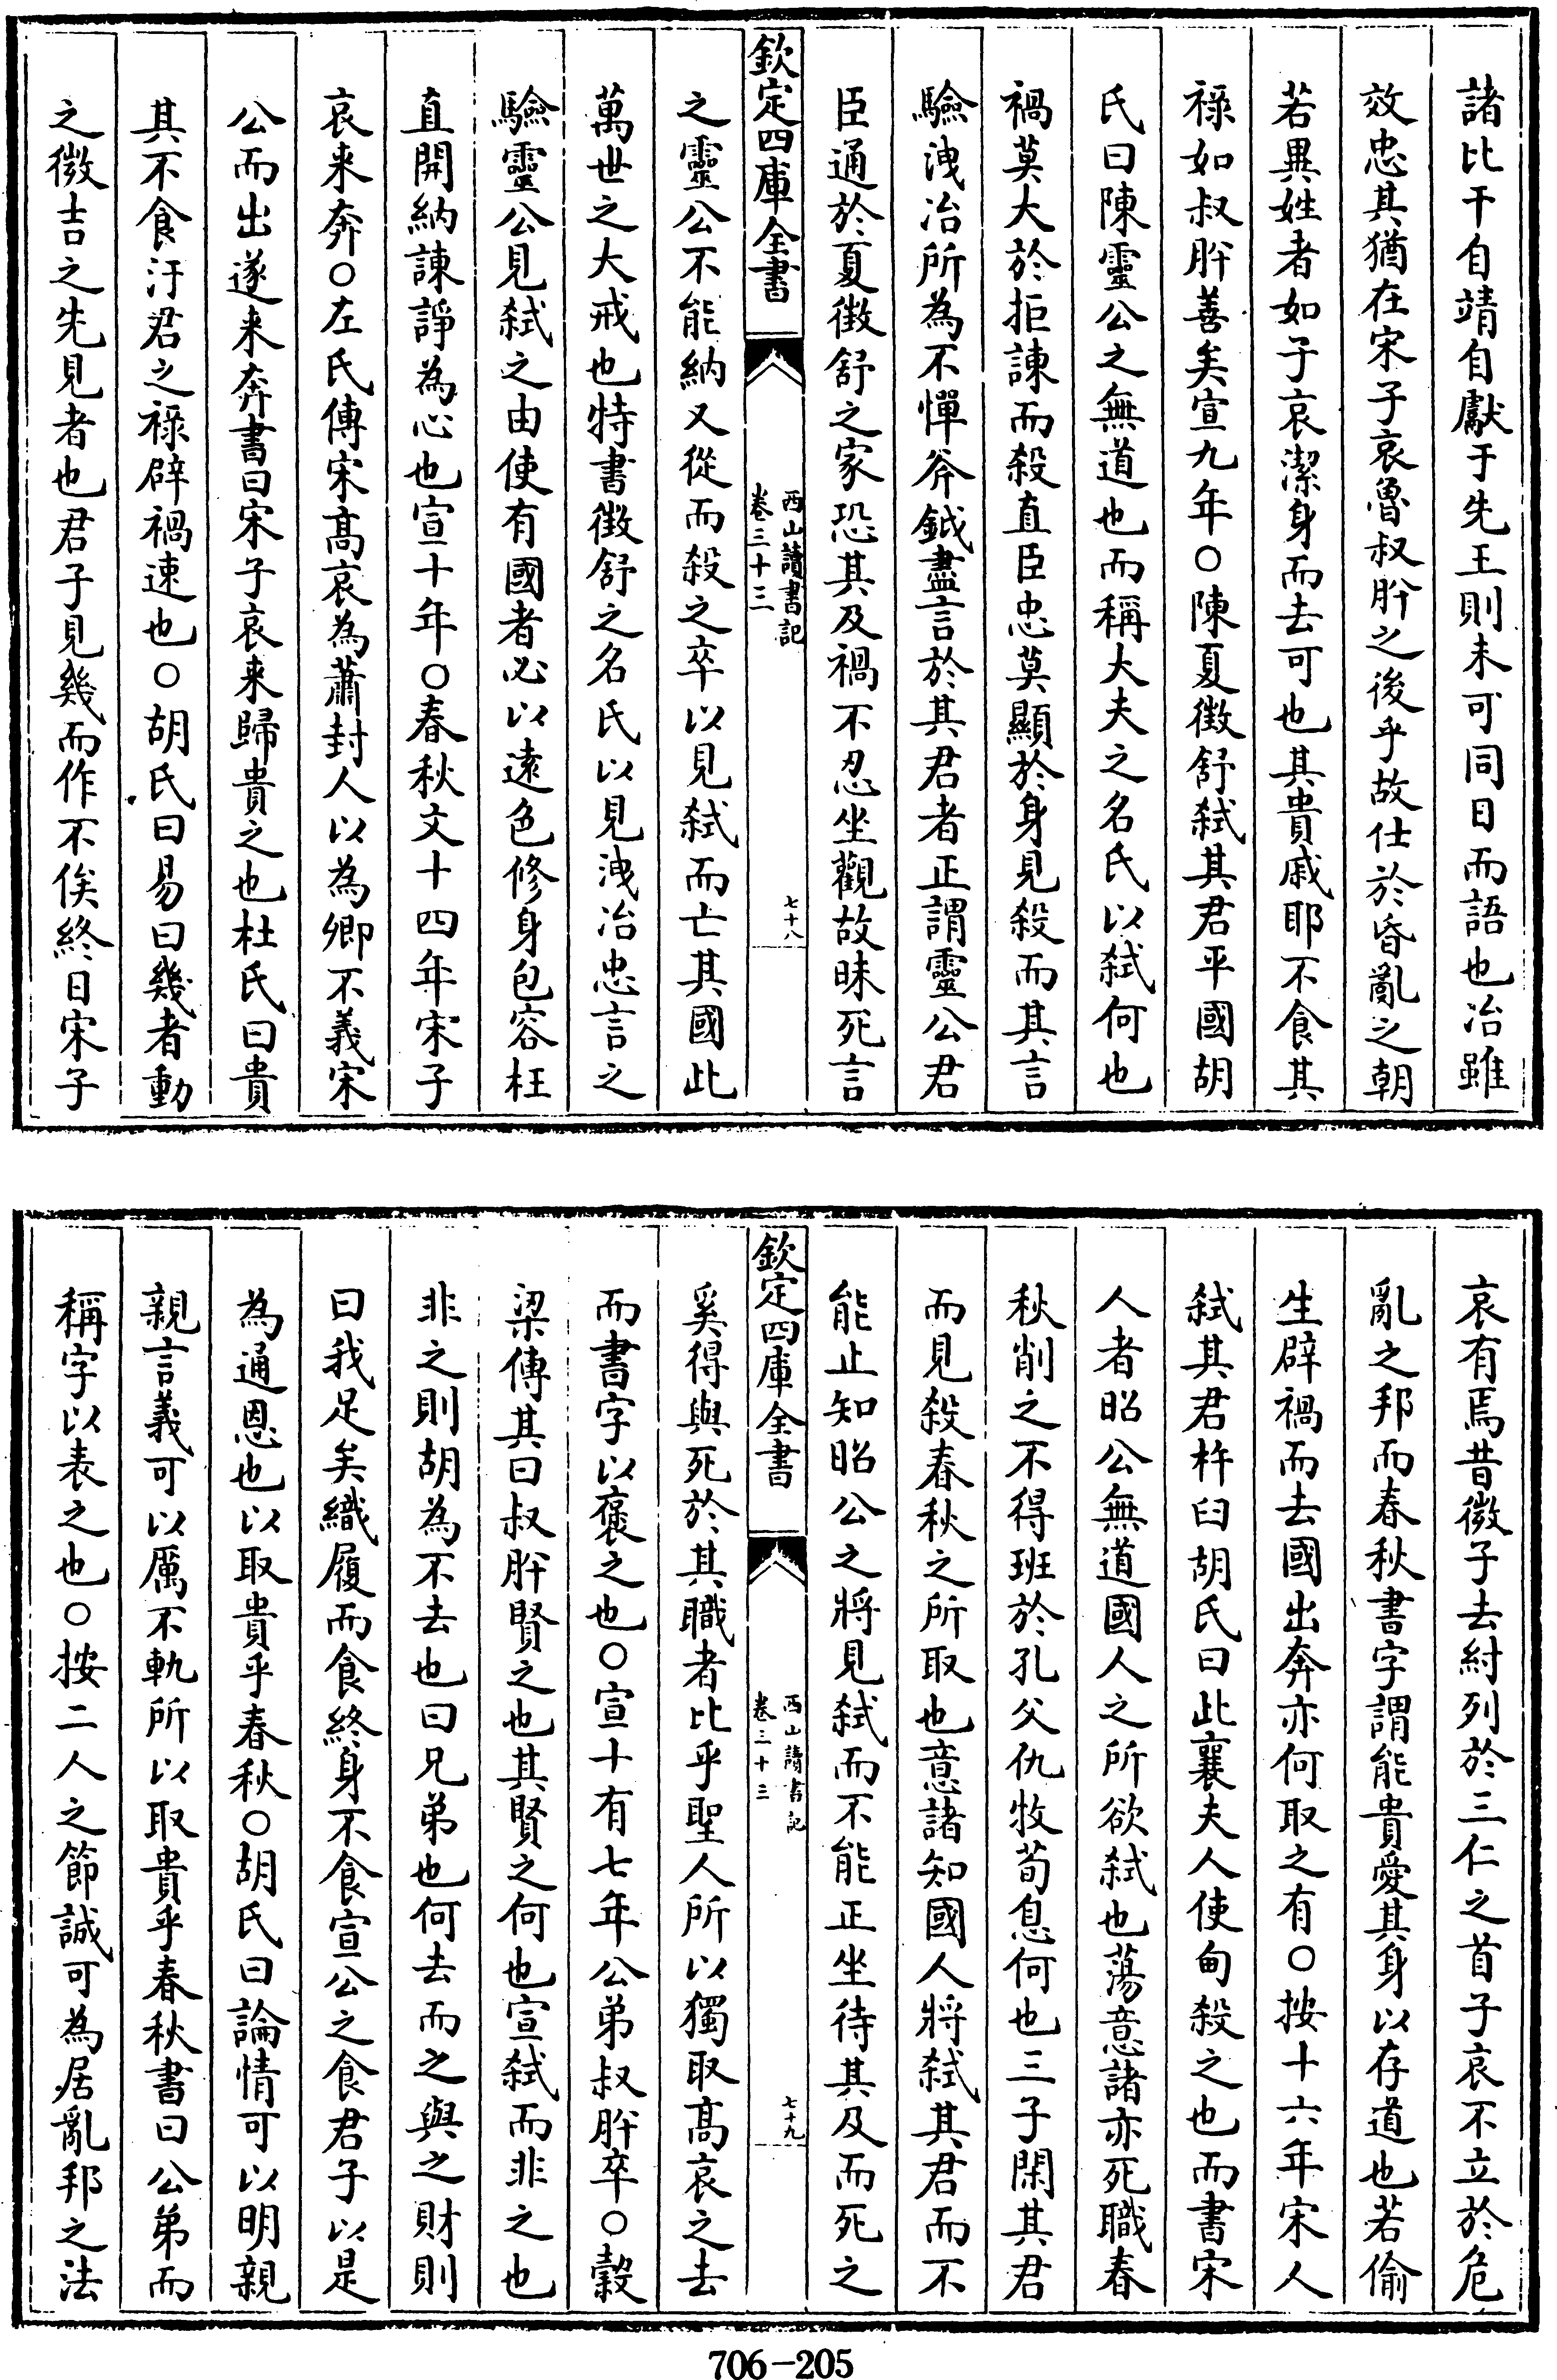 諸比干自靖自獻于先王則未可同日而語也冶雖
效忠其猶在宋子哀魯叔肸之後乎故仕於昏亂之朝
若異姓者如子哀潔身而去可也其貴戚耶不食其
祿如叔肸善矣宣九年○陳夏徵舒弑其君平國胡
氏曰陳靈公之無道也而稱大夫之名氏以弑何也
禍莫大於拒諫而殺直臣忠莫顯於身見殺而其言
驗洩冶所為不憚斧鉞盡言於其君者正謂靈公君
臣通於夏徵舒之家恐其及禍不忍坐觀故昧死言
欽定四庫全書
西山讀書記
卷三十三
七十八
之靈公不能納又從而殺之卒以見弑而亡其國此
萬世之大戒也特書徵舒之名氏以見洩冶忠言之
驗靈公見弑之由使有國者必以遠色修身包容枉
直開納諫諍為心也宣十年○春秋文十四年宋子
哀来奔○左氏傳宋髙哀為蕭封人以為卿不義宋
公而出遂来奔書曰宋子哀来歸貴之也杜氏曰貴
其不食汙君之祿辟禍速也○胡氏曰易曰幾者動
之微吉之先見者也君子見幾而作不俟終日宋子
哀有焉昔微子去紂列於三仁之首子哀不立於危
亂之邦而春秋書字謂能貴愛其身以存道也若偷
生辟禍而去國出奔亦何取之有○按十六年宋人
弑其君杵臼胡氏曰此襄夫人使甸殺之也而書宋
人者昭公無道國人之所欲弑也蕩意諸亦死職春
秋削之不得班於孔父仇牧荀息何也三子閑其君
而見殺春秋之所取也意諸知國人將弑其君而不
能止知昭公之將見弑而不能正坐待其及而死之
欽定四庫全書
西山讀書記
卷三十三
七十九
奚得與死於其職者比乎聖人所以獨取髙哀之去
而書字以褒之也○宣十有七年公弟叔肸卒○榖
梁傳其曰叔肸賢之也其賢之何也宣弑而非之也
非之則胡為不去也曰兄弟也何去而之與之財則
曰我足矣織屨而食終身不食宣公之食君子以是
為通恩也以取貴乎春秋○胡氏曰論情可以明親
親言義可以厲不軌所以取貴乎春秋書曰公弟而
稱字以表之也○按二人之節誠可為居亂邦之法
706-205